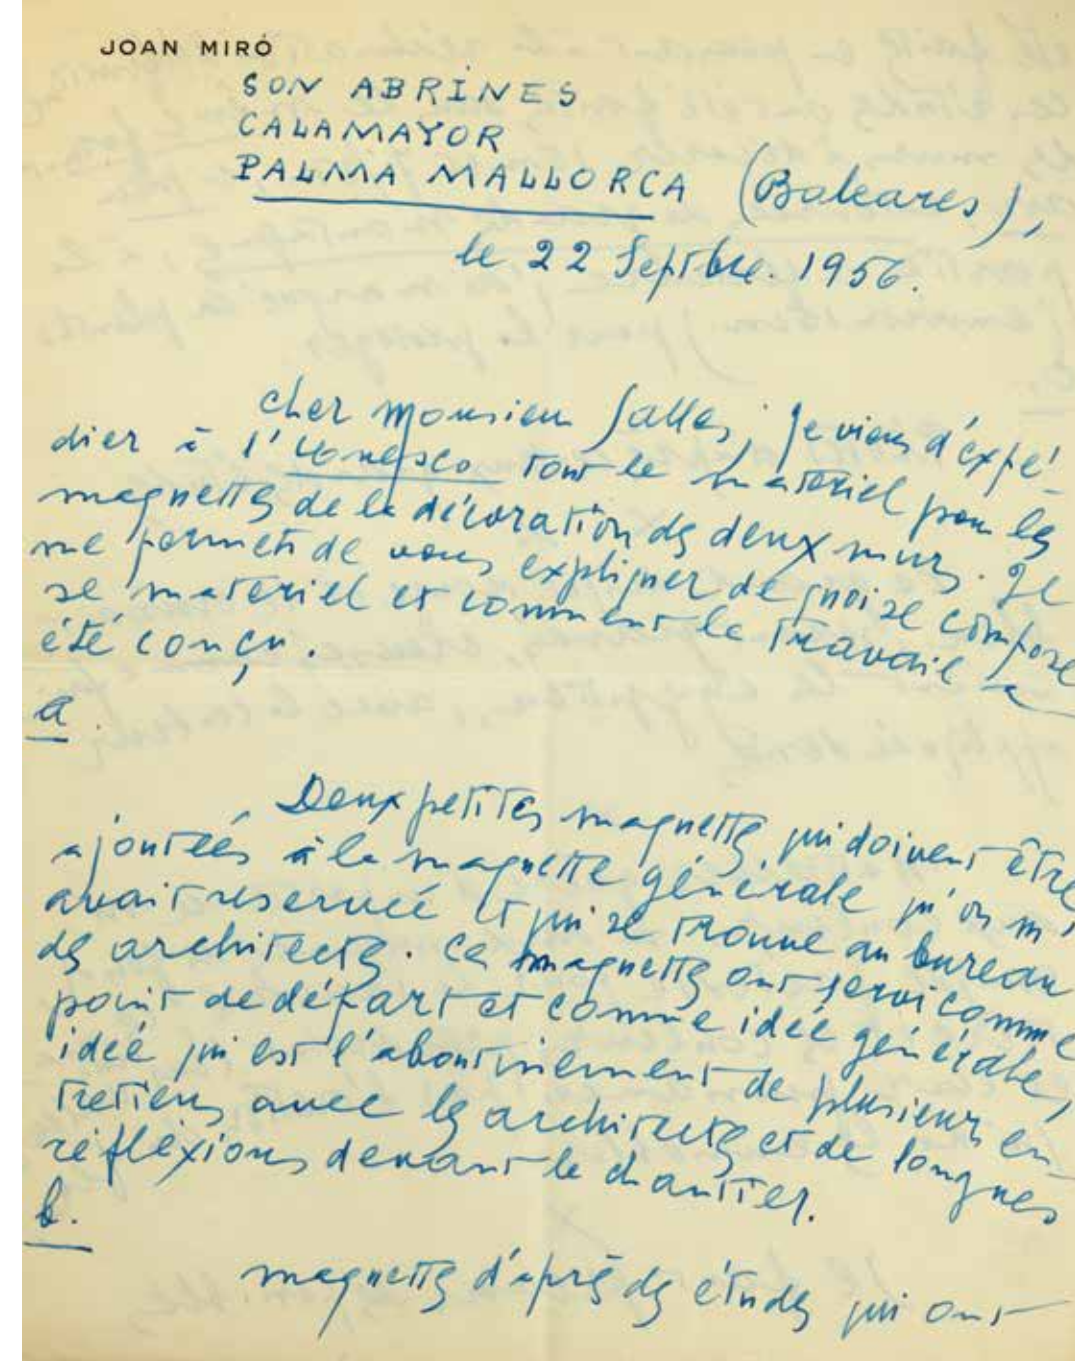 JOAN MIRÓ
SON ABRINES
CALAMAYOR
PALMA MALLORCA (Baleares),
le 22 Septbre. 1956.
cher Monsieur Salles, je viens d'expé-
dier à l'Unesco tout le materiel pour les
maquettes de la décoration des deux murs. Je
me permets de vous expliquer de quoi se compose
se materiel et comment le travail a
été conçu.
a.
Deux petites maquettes, qui doivent être
ajoutées à la maquette générale qu'on m'
avait reservée et qui se trouve au bureau
des architectes. Ces maquettes ont servi comme
point de départ et comme idée générale,
idée qui est l'aboutinement de plusieurs en-
tretiens avec les architectes et de longues
réfléxions devant le chantier.
b.
maquettes d'après des études qui ont